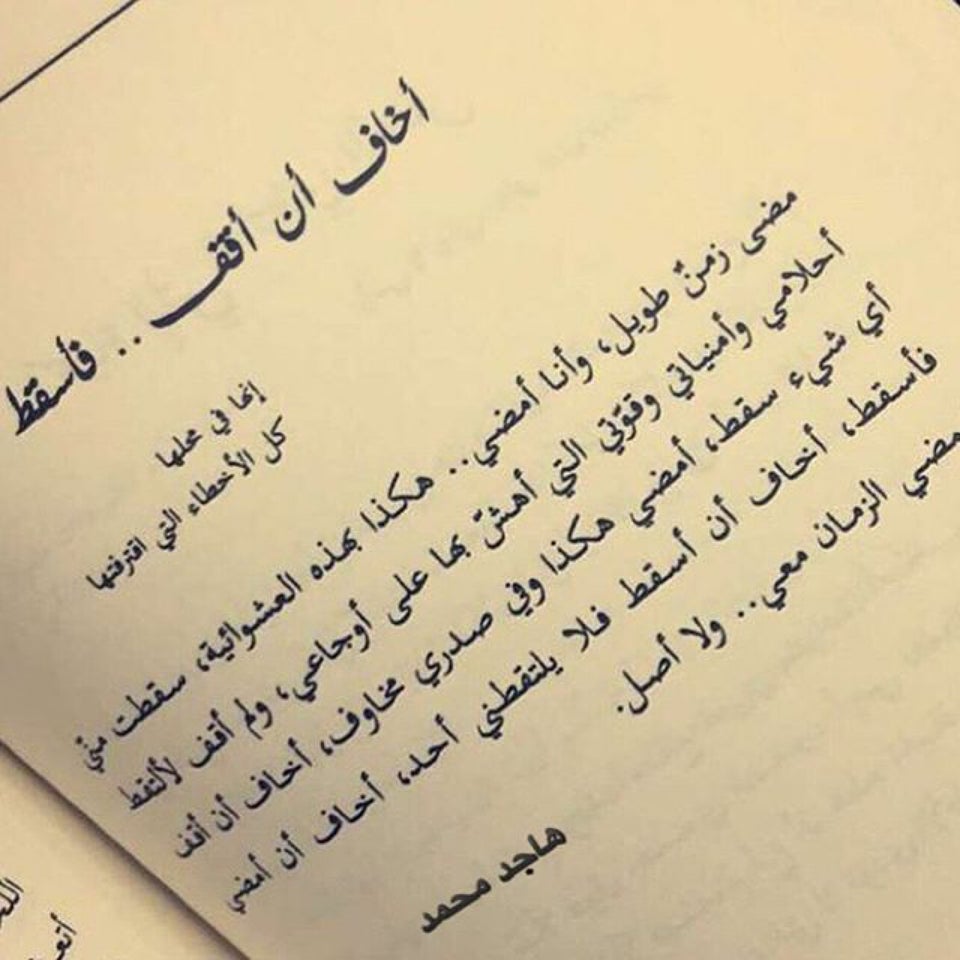 أخاف أن أقف .. فأسقط
إنها في محلها
كل الأخطاء التي اقترفتها
مضى زمنٌ طويل، وأنا أمضي.. هكذا بهذه العشوائية، سقطت منّي
أحلامي وأمنياتي وقوّتي التي أهشّ بها على أوجاعي، ولم أقف لألتقط
أي شيء سقط، أمضي هكذا وفي صدري مخاوف، أخاف أن أقف
فأسقط، أخاف أن أسقط فلا يلتقطني أحد، أخاف أن أمضي
مضي الزمان معي.. ولا أصل.
هاجد محمد